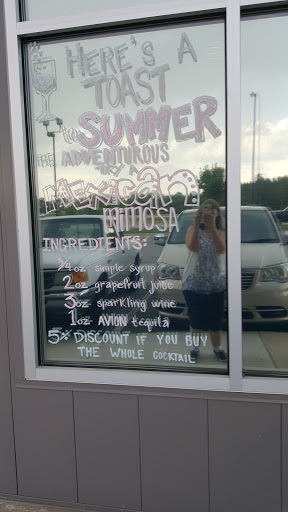 HERE'S A
TOAST
to SUMMER
THE ADVENTUROUS
MEXICAN
MIMOSA
INGREDIENTS:
3/4 oz simple syrup
2 oz grapefruit juice
3 oz sparkling wine
1 oz AVION tequila
5% DISCOUNT IF YOU BUY
THE WHOLE COCKTAIL